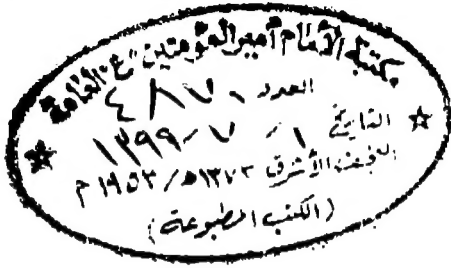 مكتبة الإمام أمير المؤمنين "ع" العامة
العدد ٤٨٧٠
التاريخ ١ / ٧ / ١٣٩٩
النجف الأشرف ١٣٧٣هـ/١٩٥٣م
(الكتب المطبوعة)